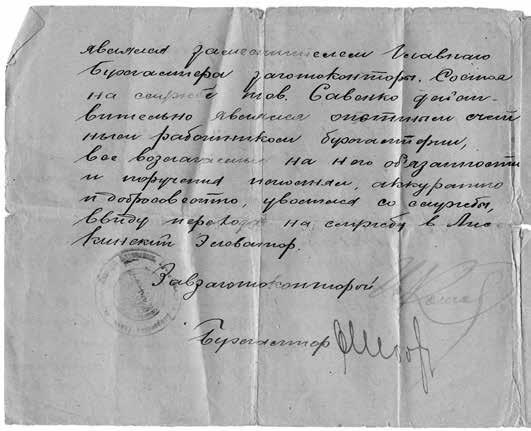 являлся заместителем Главнаго
Бухгалтера Заготоконторы. Состоя
на службе тов. Савенко действ-
вительно являлся опытным счет
ным работником бухгалтерии,
все возлагаемыя на него обязанности
и поручения исполнял, аккуратно
и добросовестно, уволился со службы,
ввиду перехода на службу в Лис
кинский Элеватор.
Завзаготоконторой
Бухгалтер